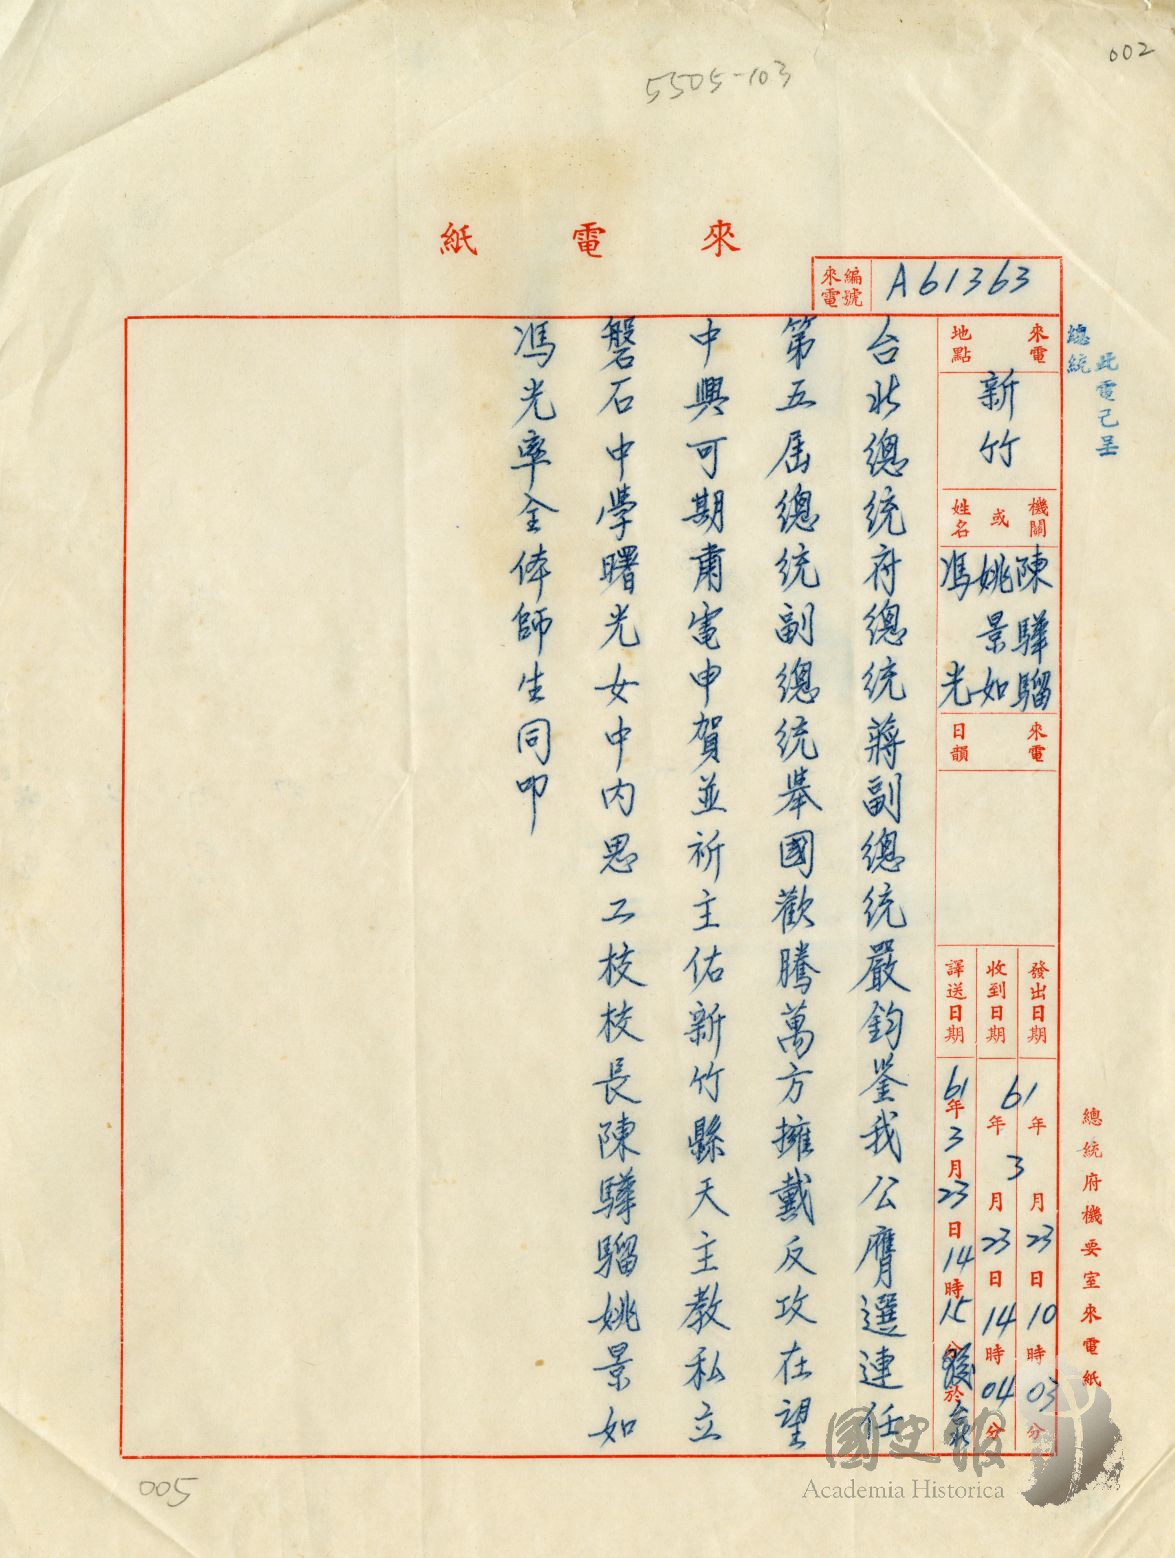 002
5505-103
來電紙
來電編號
A61363
此電已呈
總統
來電地點
新竹
機關或姓名
陳驊騮
姚景如
馮光
來電日韻
發出日期
61年3月23日10時03分
收到日期
61年3月23日14時04分
譯送日期
61年3月23日14時15分
總統府機要室來電紙
台北總統府總統蔣副總統嚴鈞鑒我公膺選連任
第五屆總統副總統舉國歡騰萬方擁戴反攻在望
中興可期肅電申賀並祈主佑新竹縣天主教私立
磐石中學曙光女中內思工校校長陳驊騮姚景如
馮光率全体師生同叩
005
國史館
Academia Historica